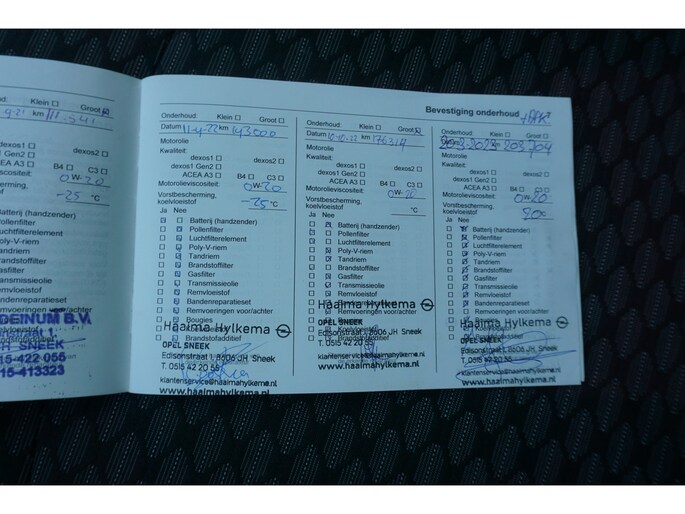 Klein ☐ Groot
km 111.541
B4 ☐ C3 ☐
0W-20
-25 °C
DEINUM B.V.
H. SNEEK
15-422 055
15-413323
Bevestiging onderhoud
Onderhoud: Klein ☐ Groot
Datum 11-4-22 km 143000
Motorolie
Kwaliteit:
dexos1 ☐ dexos2 ☐
dexos1 Gen2 ☐
ACEA A3 ☐ B4 ☐ C3 ☐
Motorolieviscositeit: 0W-20
Vorstbescherming,
koelvloeistof -25 °C
Ja Nee
Batterij (handzender)
Pollenfilter
Luchtfilterelement
Poly-V-riem
Tandriem
Brandstoffilter
Gasfilter
Transmissieolie
Remvloeistof
Bandenreparatieset
Remvoeringen voor/achter
Bougies
Brandstofadditief
Haaima Hylkema
OPEL SNEEK
Edisonstraat 1, 8606 JH Sneek
T. 0515 42 20 55
klantenservice@haaimahylkema.nl
www.haaimahylkema.nl
Onderhoud: Klein ☐ Groot
Datum km 176314
Motorolie
Kwaliteit:
dexos1 ☐ dexos2 ☐
dexos1 Gen2 ☐
ACEA A3 ☐ B4 ☐ C3 ☐
Motorolieviscositeit: 0W-20
Vorstbescherming,
koelvloeistof °C
Ja Nee
Batterij (handzender)
Pollenfilter
Luchtfilterelement
Poly-V-riem
Tandriem
Brandstoffilter
Gasfilter
Transmissieolie
Remvloeistof
Bandenreparatieset
Remvoeringen voor/achter
Haaima Hylkema
OPEL SNEEK
Edisonstraat 1, 8606 JH Sneek
Brandstofadditief
T. 0515 42 20 55
klantenservice@haaimahylkema.nl
www.haaimahylkema.nl
Onderhoud: Klein ☐ Groot
203.704
Motorolie
Kwaliteit:
dexos1 ☐ dexos2 ☐
dexos1 Gen2 ☐
ACEA A3 ☐ B4 ☐ C3 ☐
Motorolieviscositeit: 0W-20
Vorstbescherming,
koelvloeistof
Ja Nee
Batterij (handzender)
Pollenfilter
Luchtfilterelement
Poly-V-riem
Tandriem
Brandstoffilter
Gasfilter
Transmissieolie
Remvloeistof
Bandenreparatieset
Remvoeringen voor/achter
Haaima Hylkema
OPEL SNEEK
Edisonstraat 1, 8606 JH Sneek
T. 0515 42 20 55
klantenservice@haaimahylkema.nl
www.haaimahylkema.nl